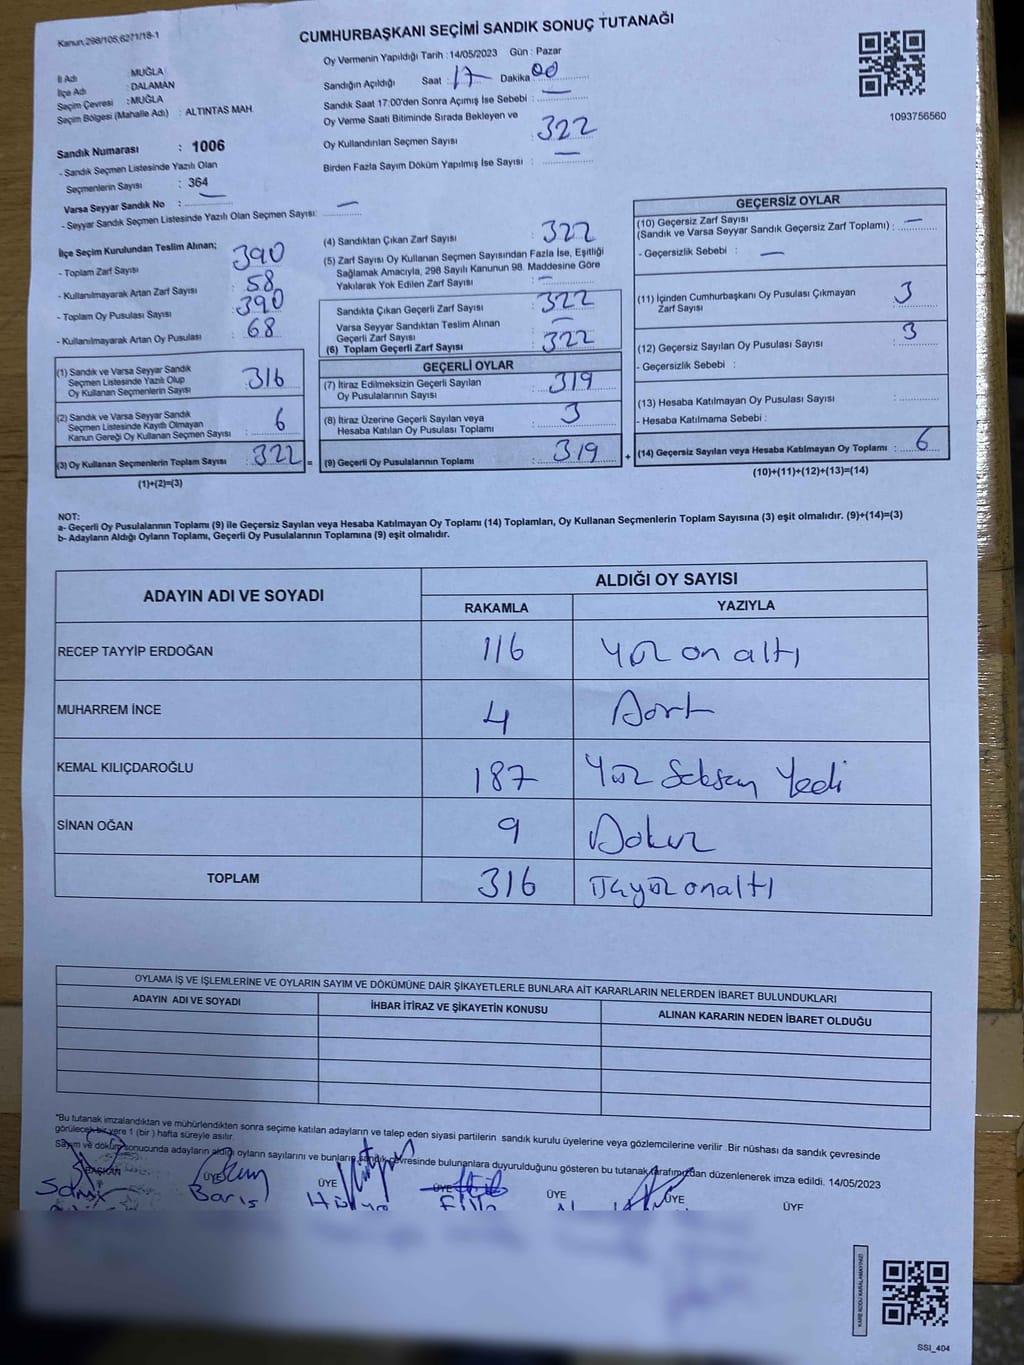 Kanun,298/105,6271/18-1
CUMHURBAŞKANI SEÇİMİ SANDIK SONUÇ TUTANAĞI
İl Adı : MUĞLA
İlçe Adı : DALAMAN
Seçim Çevresi : MUĞLA
Seçim Bölgesi (Mahalle Adı) : ALTINTAS MAH.
Sandık Numarası : 1006
- Sandık Seçmen Listesinde Yazılı Olan
Seçmenlerin Sayısı : 364
Varsa Seyyar Sandık No : —
- Seyyar Sandık Seçmen Listesinde Yazılı Olan Seçmen Sayısı: —
Oy Vermenin Yapıldığı Tarih : 14/05/2023 Gün : Pazar
Sandığın Açıldığı Saat : 17 Dakika : 00
Sandık Saat 17:00'den Sonra Açımış İse Sebebi : —
Oy Verme Saati Bitiminde Sırada Bekleyen ve
Oy Kullandırılan Seçmen Sayısı : 322
Birden Fazla Sayım Döküm Yapılmış İse Sayısı : —
1093756560
İlçe Seçim Kurulundan Teslim Alınan;
- Toplam Zarf Sayısı : 390
- Kullanılmayarak Artan Zarf Sayısı : 58
- Toplam Oy Pusulası Sayısı : 390
- Kullanılmayarak Artan Oy Pusulası : 68
(1) Sandık ve Varsa Seyyar Sandık
Seçmen Listesinde Yazılı Olup
Oy Kullanan Seçmenlerin Sayısı : 316
(2) Sandık ve Varsa Seyyar Sandık
Seçmen Listesinde Kayıtlı Olmayan
Kanun Gereği Oy Kullanan Seçmen Sayısı : 6
(3) Oy Kullanan Seçmenlerin Toplam Sayısı : 322 =
(1)+(2)=(3)
(4) Sandıktan Çıkan Zarf Sayısı : 322
(5) Zarf Sayısı Oy Kullanan Seçmen Sayısından Fazla İse, Eşitliği
Sağlamak Amacıyla, 298 Sayılı Kanunun 98. Maddesine Göre
Yakılarak Yok Edilen Zarf Sayısı : —
Sandıkta Çıkan Geçerli Zarf Sayısı : 322
Varsa Seyyar Sandıktan Teslim Alınan
Geçerli Zarf Sayısı : —
(6) Toplam Geçerli Zarf Sayısı : 322
GEÇERLİ OYLAR
(7) İtiraz Edilmeksizin Geçerli Sayılan
Oy Pusulalarının Sayısı : 319
(8) İtiraz Üzerine Geçerli Sayılan veya
Hesaba Katılan Oy Pusulası Toplamı : 3
(9) Geçerli Oy Pusulalarının Toplamı : 319 +
GEÇERSİZ OYLAR
(10) Geçersiz Zarf Sayısı
(Sandık ve Varsa Seyyar Sandık Geçersiz Zarf Toplamı) : —
- Geçersizlik Sebebi : —
(11) İçinden Cumhurbaşkanı Oy Pusulası Çıkmayan
Zarf Sayısı : 3
(12) Geçersiz Sayılan Oy Pusulası Sayısı : 3
- Geçersizlik Sebebi :
(13) Hesaba Katılmayan Oy Pusulası Sayısı :
- Hesaba Katılmama Sebebi :
(14) Geçersiz Sayılan veya Hesaba Katılmayan Oy Toplamı : 6
(10)+(11)+(12)+(13)=(14)
NOT:
a- Geçerli Oy Pusulalarının Toplamı (9) ile Geçersiz Sayılan veya Hesaba Katılmayan Oy Toplamı (14) Toplamları, Oy Kullanan Seçmenlerin Toplam Sayısına (3) eşit olmalıdır. (9)+(14)=(3)
b- Adayların Aldığı Oyların Toplamı, Geçerli Oy Pusulalarının Toplamına (9) eşit olmalıdır.
ADAYIN ADI VE SOYADI ALDIĞI OY SAYISI
RAKAMLA YAZIYLA
RECEP TAYYİP ERDOĞAN 116 Yüz on altı
MUHARREM İNCE 4 Dört
KEMAL KILIÇDAROĞLU 187 Yüz Seksen Yedi
SİNAN OĞAN 9 Dokuz
TOPLAM 316 üçyüz onaltı
OYLAMA İŞ VE İŞLEMLERİNE VE OYLARIN SAYIM VE DÖKÜMÜNE DAİR ŞİKAYETLERLE BUNLARA AİT KARARLARIN NELERDEN İBARET BULUNDUKLARI
ADAYIN ADI VE SOYADI İHBAR İTİRAZ VE ŞİKAYETİN KONUSU ALINAN KARARIN NEDEN İBARET OLDUĞU
*Bu tutanak imzalandıktan ve mühürlendikten sonra seçime katılan adayların ve talep eden siyasi partilerin sandık kurulu üyelerine veya gözlemcilerine verilir. Bir nüshası da sandık çevresinde
görülecek bir yere 1 (bir ) hafta süreyle asılır.
Sayım ve döküm sonucunda adayların aldığı oyların sayılarını ve bunların sandık çevresinde bulunanlara duyurulduğunu gösteren bu tutanak tarafımızdan düzenlenerek imza edildi. 14/05/2023
BAŞKAN ÜYE ÜYE ÜYE ÜYE ÜYE ÜYE
Barış Hülya
KARE KODU KARALAMAYINIZ!
SSI_404